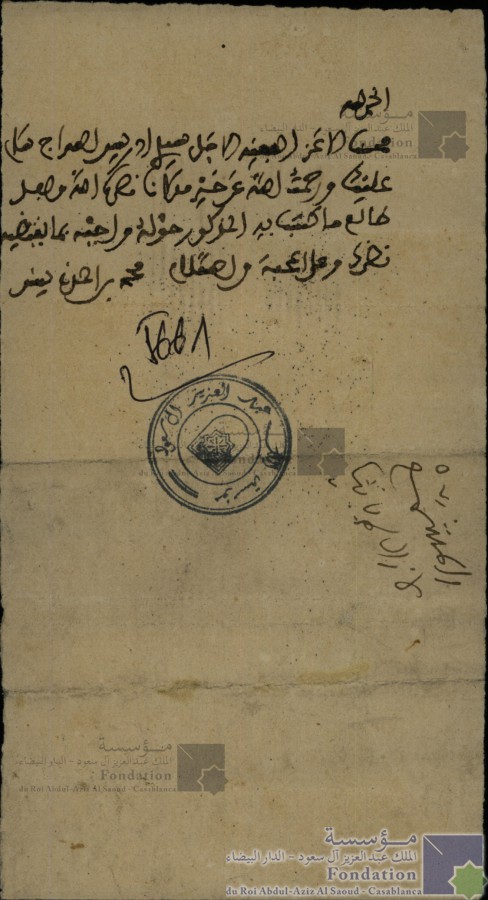 الحمد لله
محبنا الاعز الفقيه الاجل سيدي ادريس السراج سلام
عليك ورحمت الله عن خير مولانا نصره الله وبعد
طالع ما كتب به المذكور حوله واجبه بما يقتضيه
نظرك وعلى المحبة والسلام محمد بن المدني بنيس
مؤسسة
الملك عبد العزيز آل سعود
مؤسسة
الملك عبد العزيز آل سعود – الدار البيضاء
Fondation
du Roi Abdul-Aziz Al Saoud - Casablanca
مؤسسة
الملك عبد العزيز آل سعود – الدار البيضاء
Fondation
du Roi Abdul-Aziz Al Saoud - Casablanca